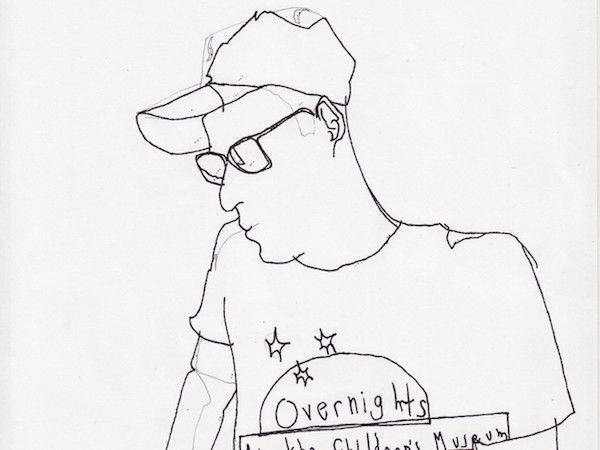 Overnights
At the Children's Museum